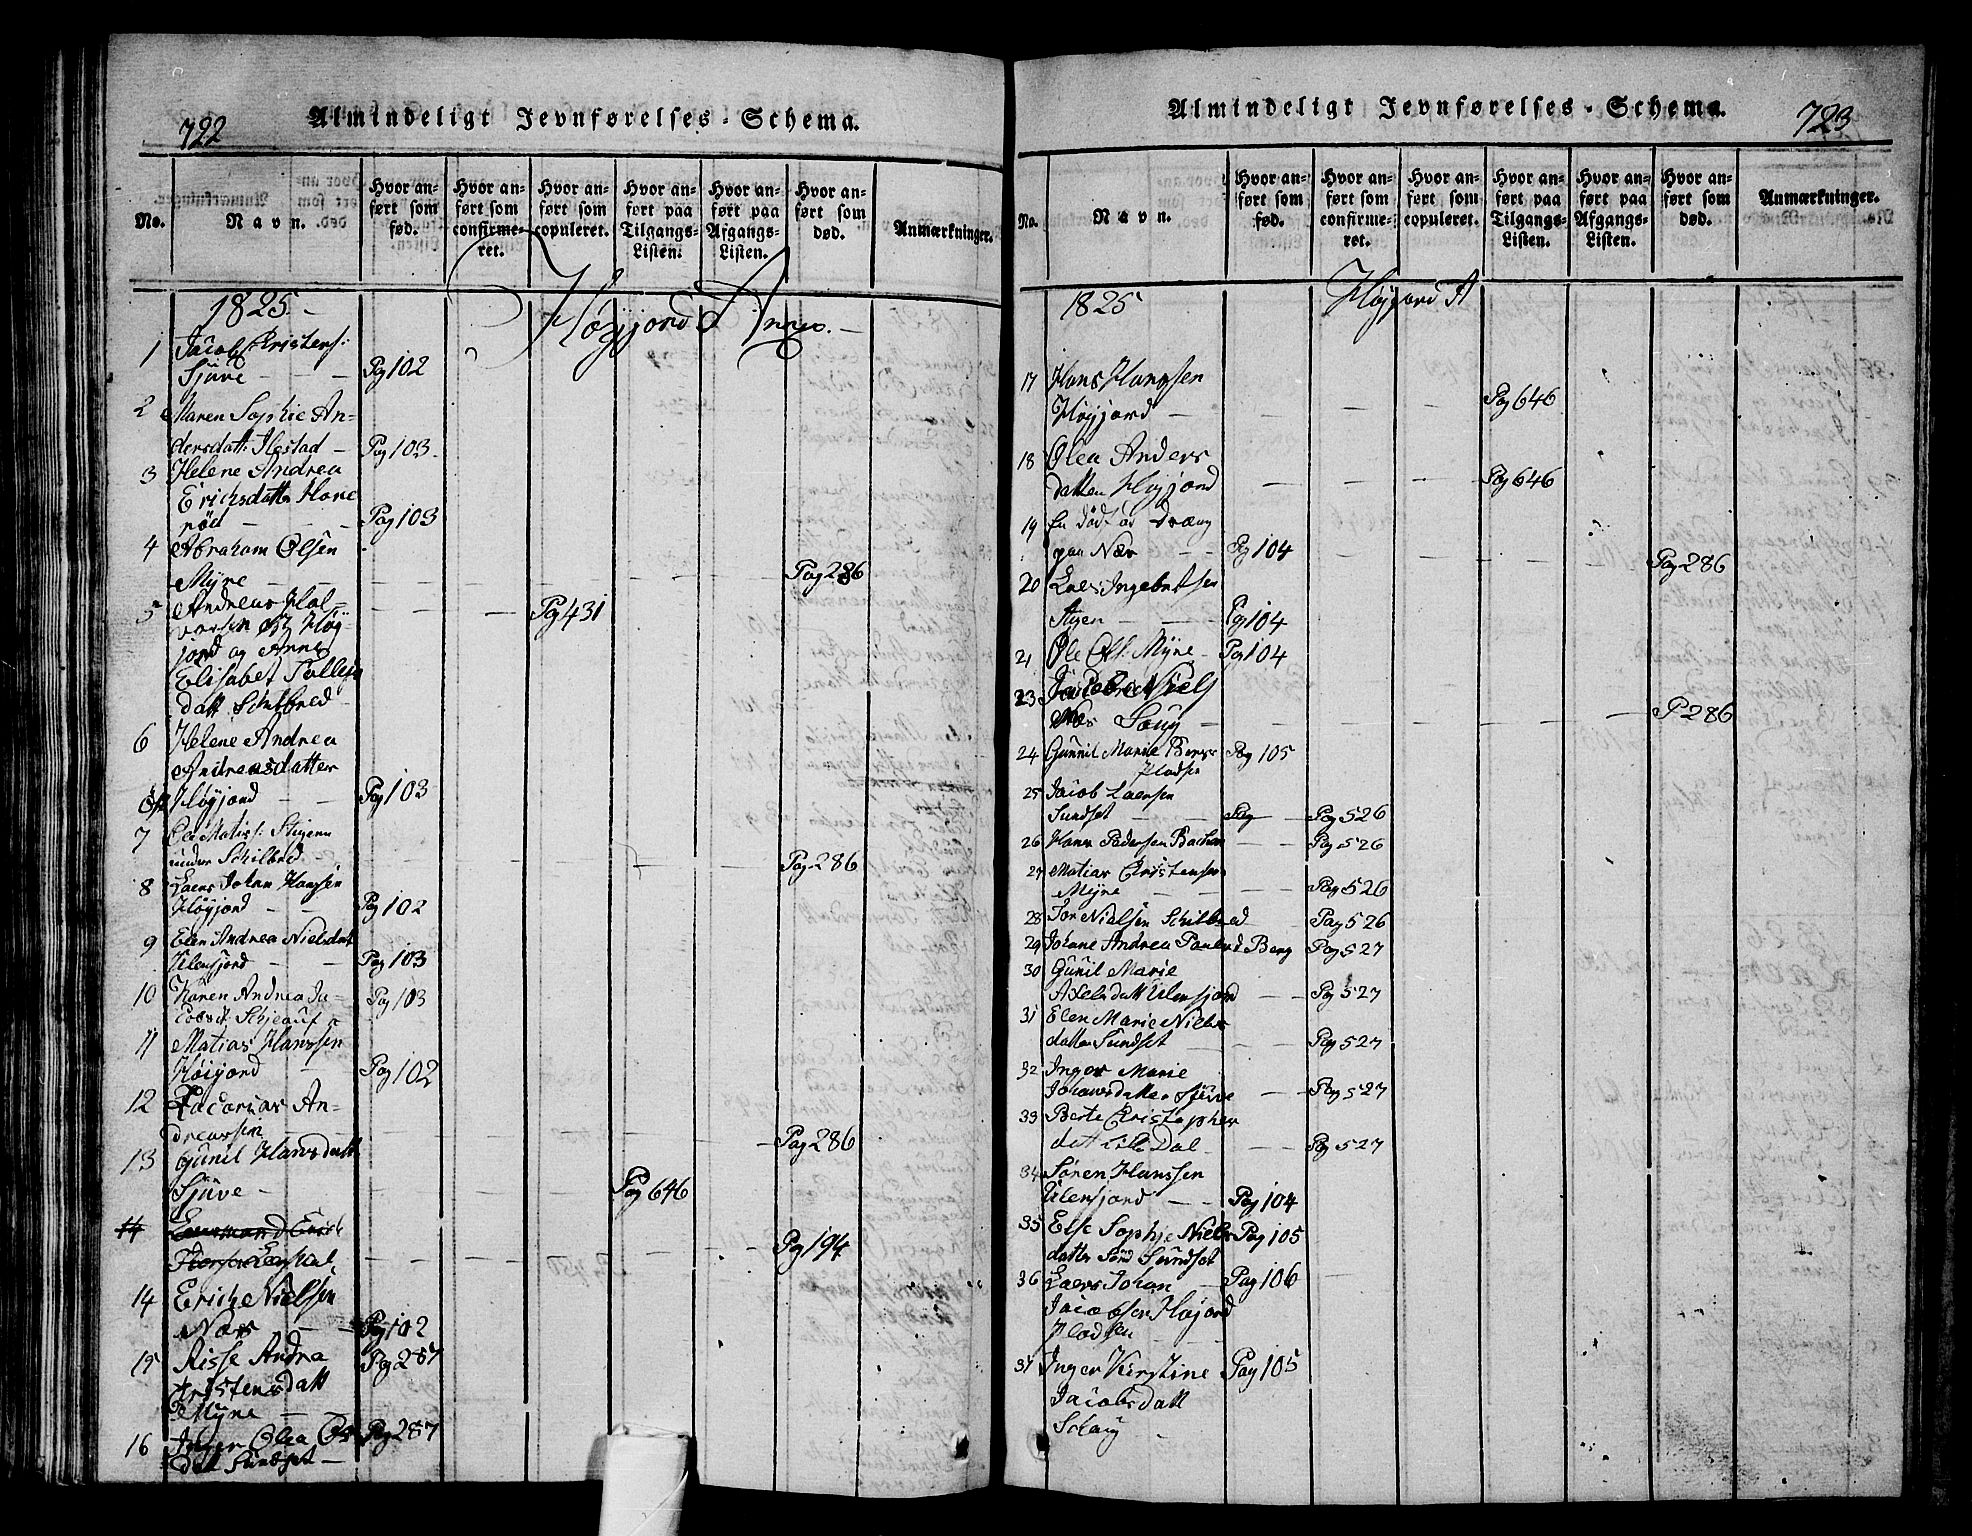 722
Almindeligt Jevnførelses-Schema.
No.
Navn.
Hvor anført som fød.
Hvor anført som confirmeret.
Hvor anført som copuleret.
Hvor anført paa Tilgangs-Listen.
Hvor anført paa Afgangs-Listen.
Hvor anført som død.
Anmærkninger.
1825.
Høyjord Annex.
1 Jacob Kristens:
Sjüve — — Pag 102
2 Maren Sophie An-
dersdatt: Ilestad — Pag 103
3 Helene Andrea
Erichsdatter Hane
rød — — Pag 103
4 Abraham Olsen
Myre — — Pag 286
5 Andreas Hal-
vorsen Høy- Pag 431
jord og Anne
Elisabet Pollen
datt. Schilbred
6 Helene Andrea
Andreasdatter
Høyjord — — Pag 103
7 Ole Matis: Stigenn
under Schilbred — Pag 286
8 Laers Johan Hansen
Høyjord — — Pag 102
9 Elen Andrea Nielsdat
Ulensjord — — Pag 103
10 Karen Andrea Ja- Pag 103
cobsd. Schjauf
11 Matias Hanssen
Høijord — Pag 102
12 Zacarias An-
dreassen — Pag 286
13 Gunil Hansdatt
Sjüve — Pag 646
14
Pag 194
14 Erich Nielsen
Næs — — Pag 102
15 Aisse Andra Pag 287
Kristensdatt
Myre — —
16 Inger Olea Os Pag 287
datt Sundset —
723
Almindeligt Jevnførelses-Schema.
No.
Navn.
Hvor anført som fød.
Hvor anført som confirmeret.
Hvor anført som copuleret.
Hvor anført paa Tilgangs-Listen.
Hvor anført paa Afgangs-Listen.
Hvor anført som død.
Anmærkninger.
1825
Høyjord A
17 Hans Hanssen
Høyjord — Pag 646
18 Olea Anders
datten Høyjord — Pag 646
19 En død før Dræng
paa Næs — — Pag 104 Pag 286
20 Laes Ingebretsen
Stigen — — Pag 104
21 Ole Ols: Myre — Pag 104
23 Jacob Niels
Næs Saug — P 286
24 Gunnil Marie Bergs Pag 105
Pladsen
25 Jacob Laersen
Sundset — — Pag — Pag 526
26 Hans Pedersen Bachen — Pag 526
27 Matias Christensen
Myre — — Pag 526
28 Tor Nielsen Schilbred — Pag 526
29 Johane Andrea Poulsd Berg Pag 527
30 Gunil Marie
Axelsdatt Ulensjord — — Pag 527
31 Elen Marie Niels
datter Sundset — Pag 527
32 Inger Marie
Johansdatter Sjüve — — Pag 527
33 Berte Christopher
datt Lille Dal — Pag 527
34 Søren Hanssen
Ulensjord — — Pag 104
35 Else Sophie Niels Pag 105
datter Sønd Sundset
36 Laers Johan — Pag 106
Jacobsen Høyord
Pladsen —
37 Inger Kirstine Pag 105
Jacobsdatt
Schaug —